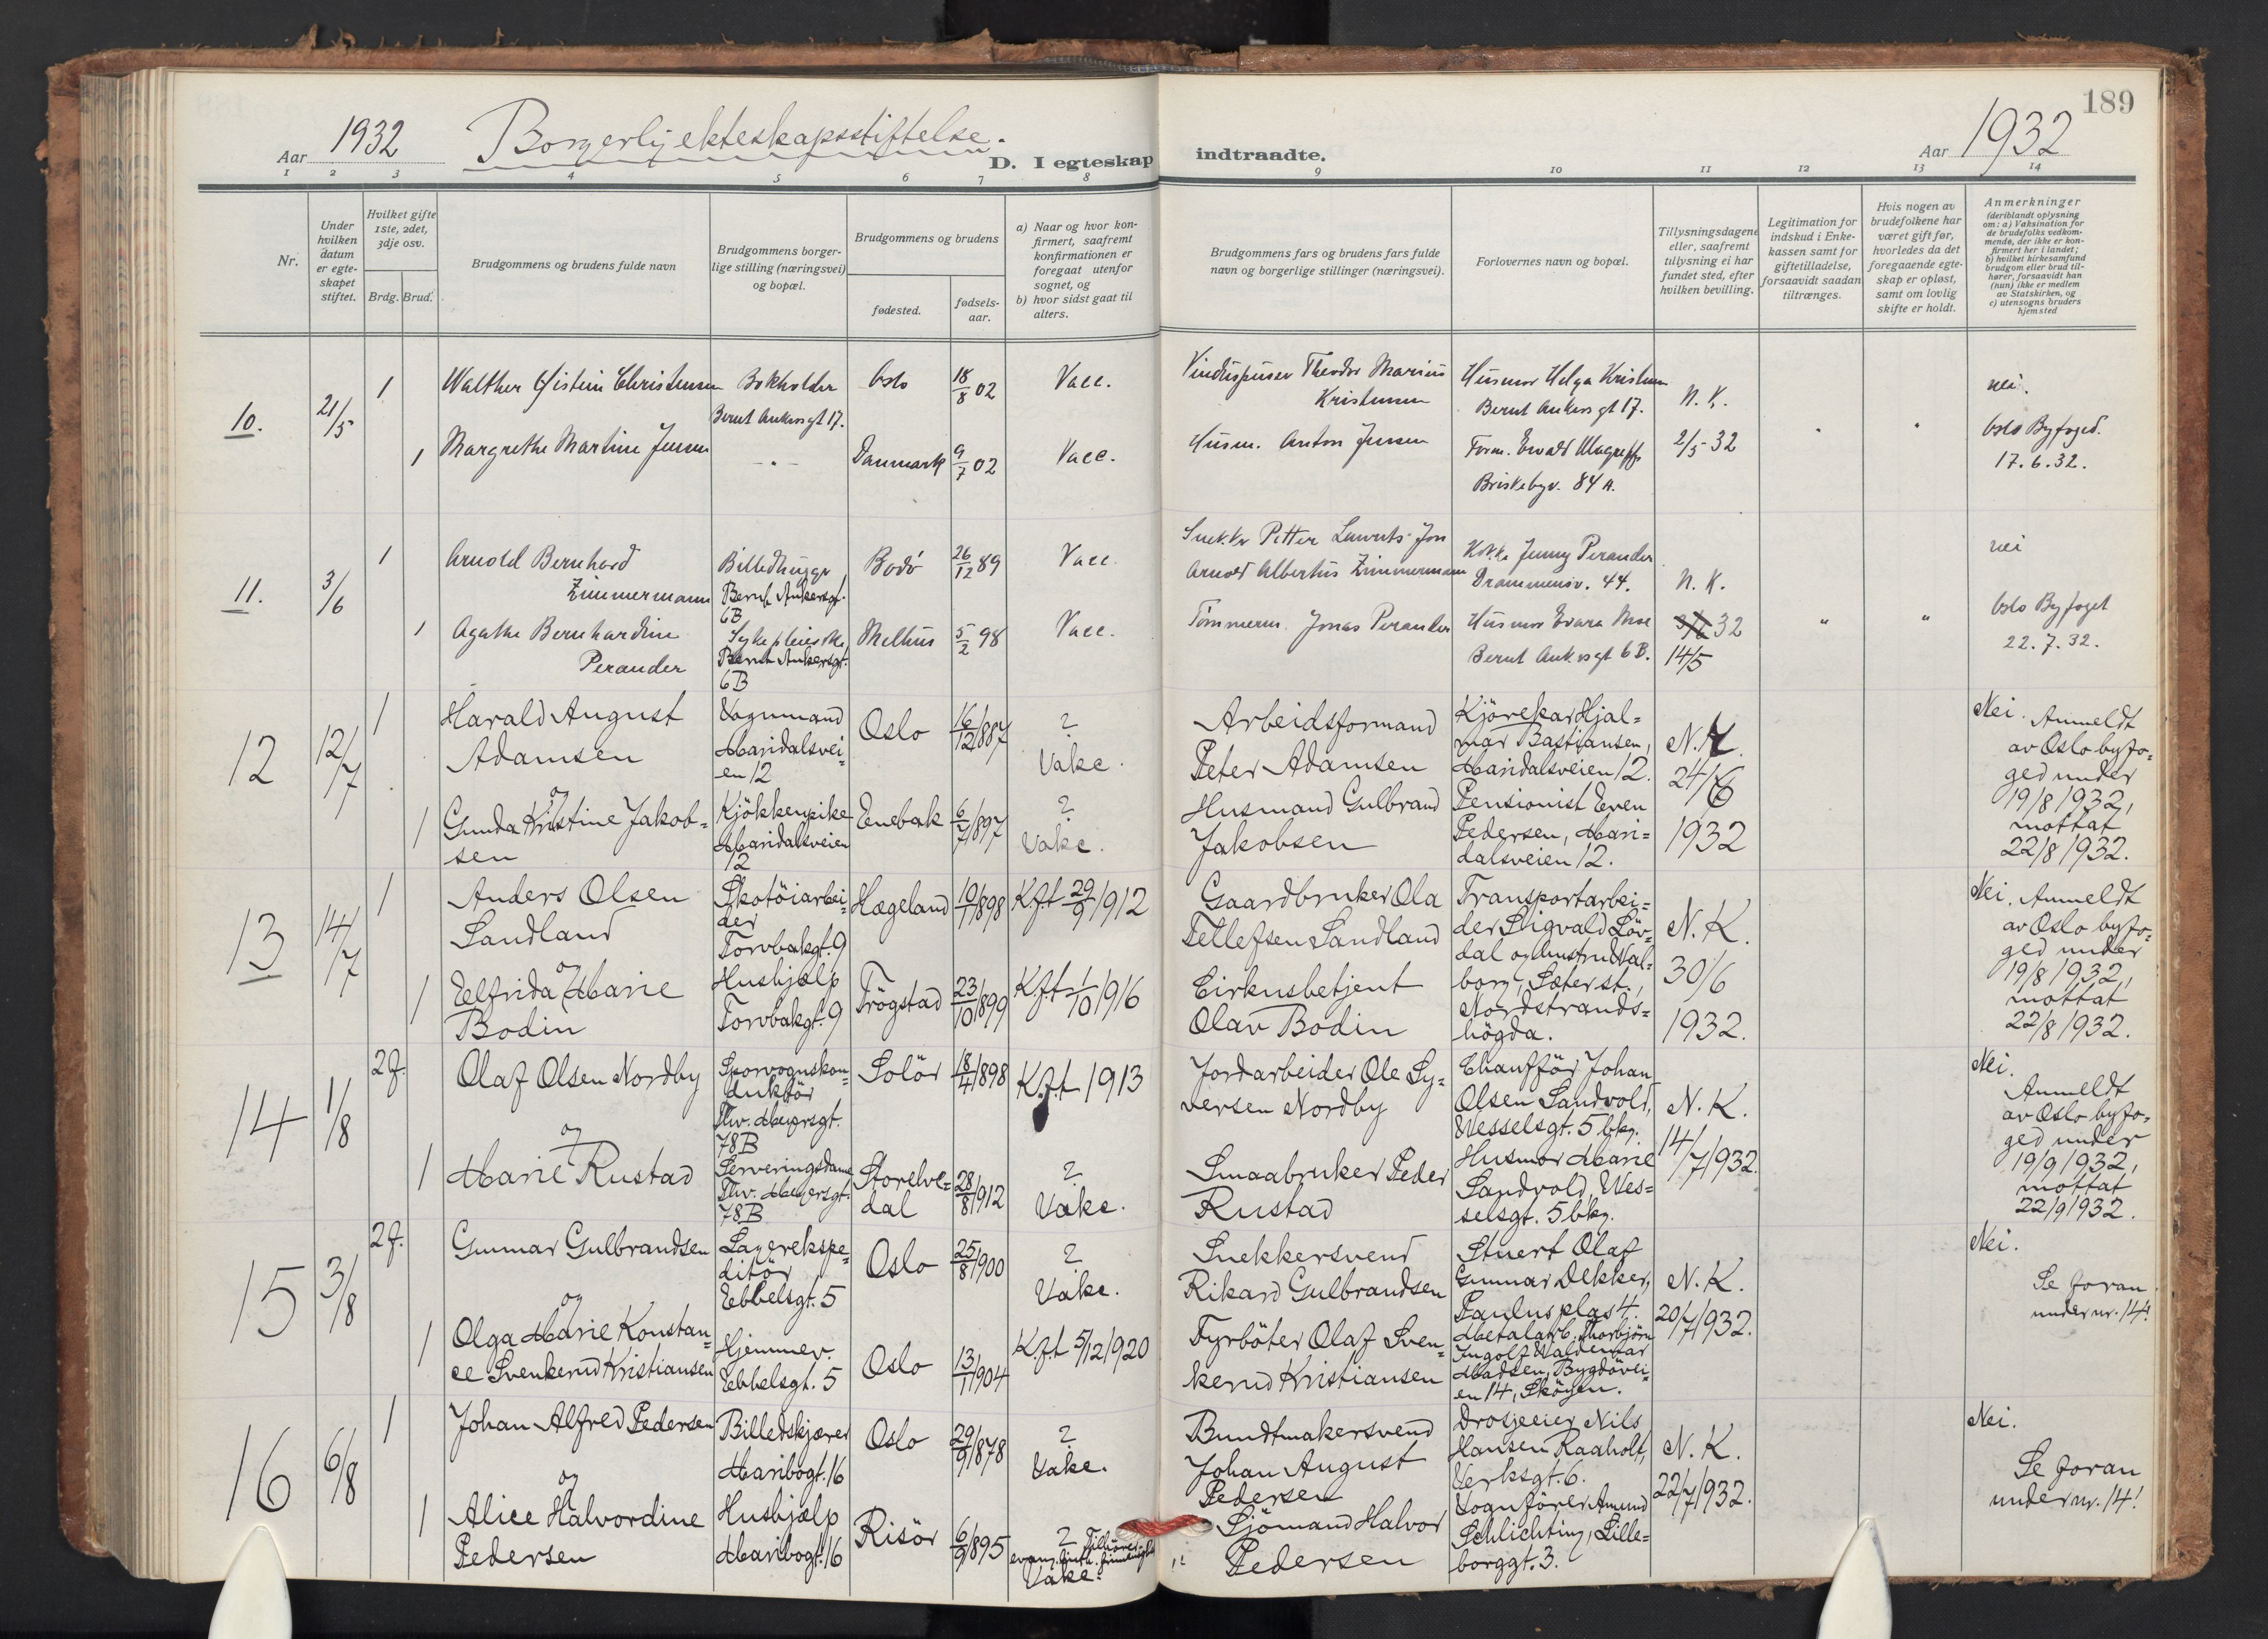 189
Aar 1932 Borgerlig ekteskapsstiftelse. D. I egteskap indtraadte. Aar 1932
1 2 3 4 5 6 7 8 9 10 11 12 13 14
Nr.
Under hvilken datum er egteskapet stiftet.
Hvilket gifte 1ste, 2det, 3dje osv.
Brdg. Brud.
Brudgommens og brudens fulde navn
Brudgommens borgerlige stilling (næringsvei) og bopæl.
Brudgommens og brudens
fødested.
fødselsaar.
a) Naar og hvor konfirmert, saafremt konfirmationen er foregaat utenfor sognet, og
b) hvor sidst gaat til alters.
Brudgommens fars og brudens fars fulde navn og borgerlige stillinger (næringsvei).
Forlovernes navn og bopæl.
Tillysningsdagene eller, saafremt tillysning ei har fundet sted, efter hvilken bevilling.
Legitimation for indskud i Enkekassen samt for giftetilladelse, forsaavidt saadan tiltrænges.
Hvis nogen av brudefolkene har været gift før, hvorledes da det foregaaende egteskap er opløst, samt om lovlig skifte er holdt.
Anmerkninger
(deriblandt oplysning om: a) Vaksination for de brudefolks vedkommende, der ikke er konfirmert her i landet; b) hvilket kirkesamfund brudgom eller brud tilhører, forsaavidt han (hun) ikke er medlem av Statskirken, og c) utensogns bruders hjemsted
10. 21/5
1 Walther Øistein Christensen
Bokholder
Bernt Ankersgt 17.
Oslo 18/8 02 Vacc.
Vinduspusser Theodor Marius
Kristensen
Husmor Helga Kristensen
Bernt Ankersgt 17.
N. K.
2/5-32
nei.
Oslo Byfoged.
17.6.32.
1 Margrethe Martine Jensen
— " —
Danmark 9/7 02 Vacc.
Husm. Anton Jensen
Form. Ewald
Briskebyv. 84 A.
11. 3/6
1 Arnold Bernhard
Zimmermann
Billedhugger
Bernt Ankersgt.
6B
Bodö 26/12 89 Vacc.
Snekker Petter Laurits Jon
Arnold Albertus Zimmermann
Kokke Jenny Perander
Drammensv. 44.
N. K.
3/6 32
14/5
nei
Oslo Byfoget
22.7.32.
1 Agathe Bernhardine
Perander
Sykepleierske
Bernt Ankersgt.
6B
Melhus 5/2 98 Vacc.
Tømmerm. Jonas Perander
Husmor Evara Moe
Bernt Ankersgt 6 B.
12 12/7
1 Harald August
Adamsen
og
Vognmand
Maridalsvei=
en 12
Oslo 16/12 1887 ?
Vakc.
Arbeidsformand
Peter Adamsen
Kjörekar Hjal=
mar Bastiansen,
Maridalsveien 12.
N. K.
24/6
1932
Nei. Anmeldt
av Oslo byfo=
ged under
19/8 1932,
mottat
22/8 1932.
1 Gunda Kristine Jakob=
sen
Kjökkenpike
Maridalsveien
12
Enebak 6/7 1897 ?
Vakc.
Husmand Gulbrand
Jakobsen
Pensionist Even
Pedersen, Mari=
dalsveien 12.
13 14/7
1 Anders Olsen
Sandland
og
Skotöiarbei=
der
Torvbakgt. 9
Hægeland 10/1 1898 K.f.t 29/9 1912
Gaardbruker Ola
Tellefsen Sandland
Transportarbei=
der Sigvald Löv=
dal og hustru Val=
borg, Sæter st.,
Nordstrands=
högda.
N. K.
30/6
1932.
Nei. Anmeldt
av Oslo byfo=
ged under
19/8 1932,
mottat
22/8 1932.
1 Elfrida Marie
Bodin
Hushjælp
Torvbakgt. 9
Trögstad 23/10 1899 K.f.t 1/10 1916
Cirkusbetjent
Olav Bodin
14 1/8
2g. Olaf Olsen Nordby
og
Sporvognskon=
duktör
Thv. Meyersgt.
78B
Solör 18/4 1898 K.f.t 1913
Jordarbeider Ole Sy=
versen Nordby
Chauffør Johan
Olsen Sandvold,
Wesselsgt. 5 bkg.
N. K.
14/7 1932.
Nei.
Anmeldt
av Oslo byfo=
ged under
19/9 1932,
mottat
22/9 1932.
1 Marie Rustad
Serveringsdame
Thv. Meyersgt.
78B
Storelve=
dal
28/8 1912 ?
Vakc.
Smaabruker Peder
Rustad
Husmor Marie
Sandvold, Wes=
selsgt. 5 bkg.
15 3/8
2g. Gunnar Gulbrandsen
og
Lagerekspe=
ditör
Ebbelsgt. 5
Oslo 25/8 1900 ?
Vakc.
Snekkersvend
Rikard Gulbrandsen
Stuert Olaf
Gunnar Dekker,
Paulus plas 4.
N. K.
20/7 1932.
Nei.
Se foran
under nr. 14!
1 Olga Marie Konstan=
ce Svenkerud Kristiansen
Hjemmev.
Ebbelsgt. 5
Oslo 13/1 1904 K.f.t 5/12 1920
Fyrböter Olaf Sven=
kerud Kristiansen
Metalarb. Thorbjörn
Ingolf Valdemar
Madsen, Bygdövei=
en 14, Sköyen.
16 6/8
1 Johan Alfred Pedersen
og
Billedskjærer
Maribogt. 16
Oslo 29/9 1878 ?
Vakc.
Bundtmakersvend
Johan August
Pedersen
Drosjeeier Nils
Hansen Raaholt,
Verksgt. 6.
N. K.
22/7 1932.
Nei.
Se foran
under nr. 14!
1 Alice Halvordine
Pedersen
Hushjælp
Maribogt. 16
Risör 6/9 1895 ? Tilhörer
evang. luth. frimenighet
Vakc.
Sjömand Halvor
Pedersen
Vognförer Amund
Schlichting, Lille=
borggt. 3.